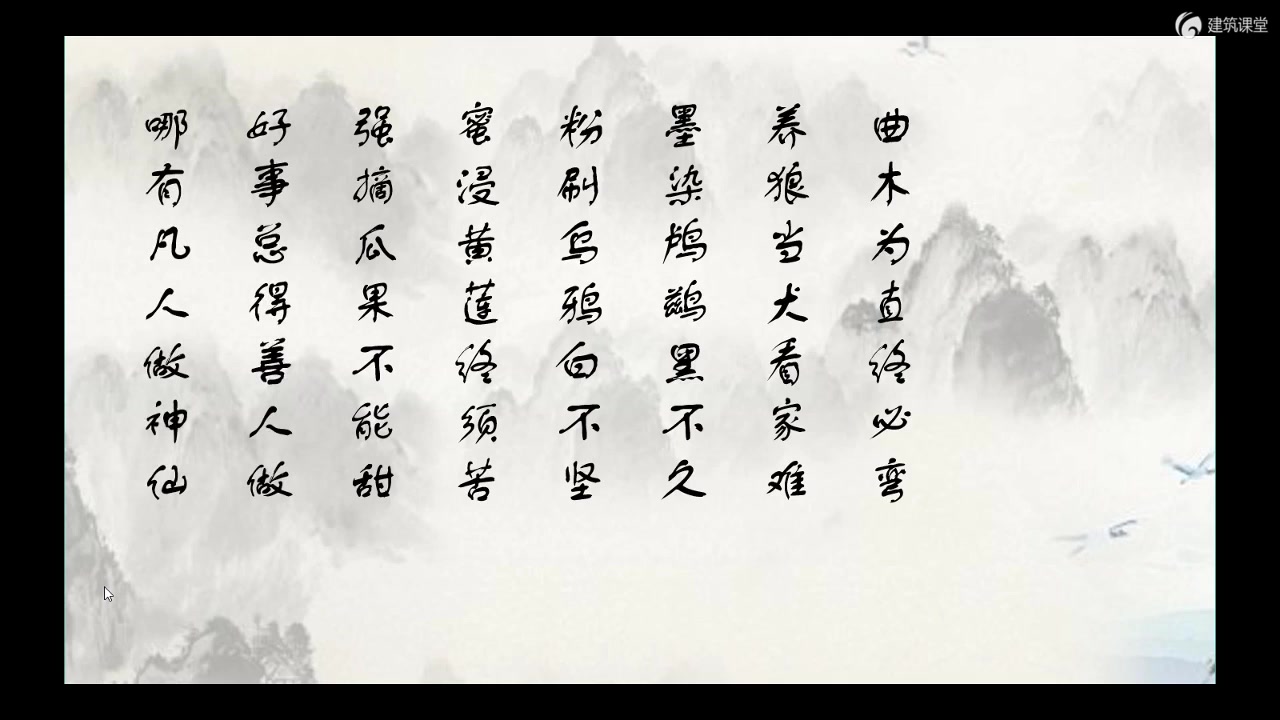 建筑课堂
曲木为直终必弯
养狼当犬看家难
墨染鸬鹚黑不久
粉刷乌鸦白不坚
蜜浸黄莲终须苦
强摘瓜果不能甜
好事总得善人做
哪有凡人做神仙